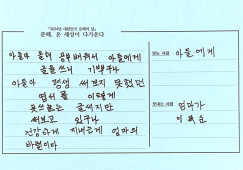 "2014년 대한민국 문해의 달"
문해, 온 세상이 다가온다
아들아 문해 공부 배워서 아들에게
글을 쓰니 기쁘구나
아들아 평생 써보지 못했던
엽서를 이렇게
못쓰는 글씨지만
써보고 있구나
건강하게 지내는게 엄마의
바램이다
받는 사람
아들에게
보내는 사람
엄마가
이
순